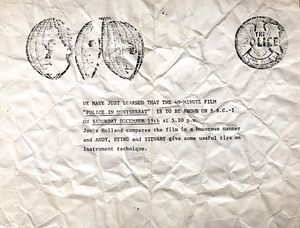 THE
POLICE
WE HAVE JUST LEARNED THAT THE 40-MINUTE FILM
"POLICE IN MONTSERRAT" IS TO BE SHOWN ON B.B.C.-1
ON SATURDAY DECEMBER 19th at 5.10 p.m.
Jools Holland comperes the film in a humorous manner
and ANDY, STING and STEWART give some useful tips on
instrument technique.